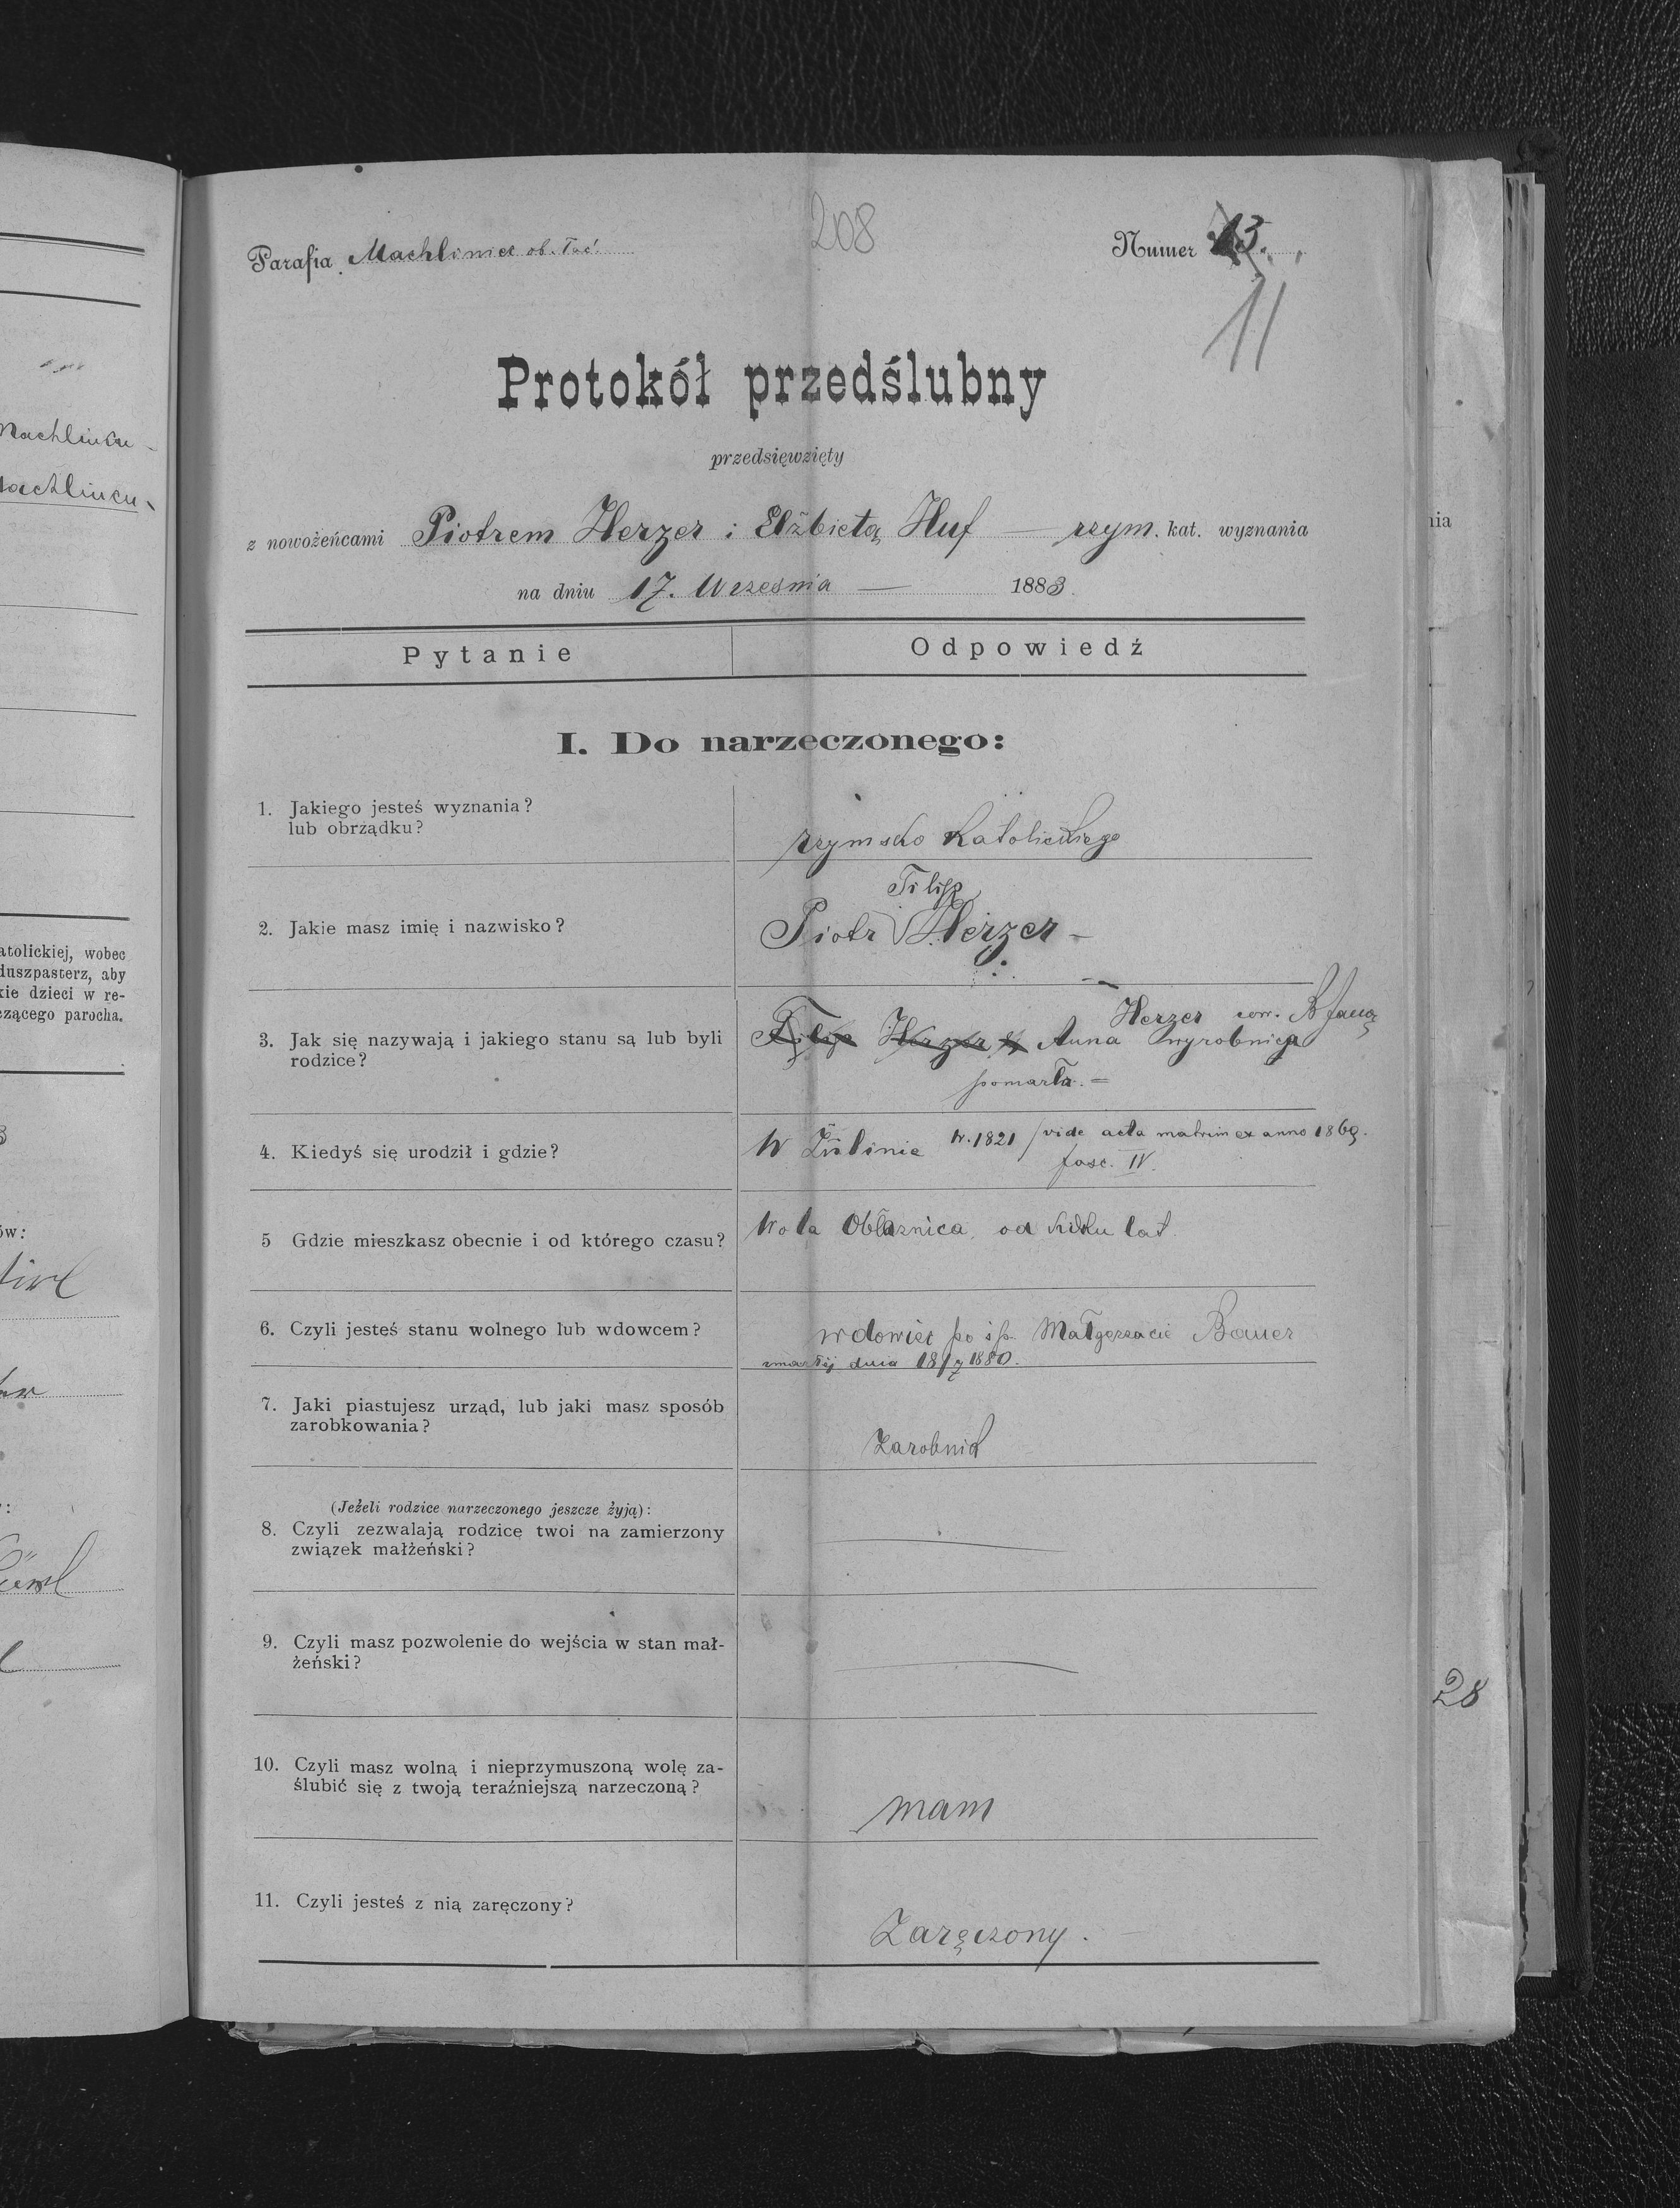 208
Parafia Machliniec ob. łać.
Numer 13.
11
Protokół przedślubny
przedsięwzięty
z nowożeńcami Piotrem Herzer i Elżbietą Huf — rzym. kat. wyznania
na dniu 17. Września — 1883.
Pytanie Odpowiedź
I. Do narzeczonego:
1. Jakiego jesteś wyznania?
lub obrządku?
rzymsko katolickiego
2. Jakie masz imię i nazwisko?
Filip
Piotr Herzer —
3. Jak się nazywają i jakiego stanu są lub byli
rodzice?
Herzer
Filip Herzer i Anna wyrobnica
pomarła. =
4. Kiedyś się urodził i gdzie?
W Žiślinie w. 1821 / vide acta matrim ex anno 1869.
fasc. IV.
5 Gdzie mieszkasz obecnie i od którego czasu?
Wola Obłaznica, od kilku lat
6. Czyli jesteś stanu wolnego lub wdowcem?
wdowiec po śp. Małgorzacie Bauer
zmarłej dnia 18/7 1880.
7. Jaki piastujesz urząd, lub jaki masz sposób
zarobkowania?
Zarobnik
(Jeżeli rodzice narzeczonego jeszcze żyją):
8. Czyli zezwalają rodzice twoi na zamierzony
związek małżeński?
9. Czyli masz pozwolenie do wejścia w stan mał-
żeński?
10. Czyli masz wolną i nieprzymuszoną wolę za-
ślubić się z twoją teraźniejszą narzeczoną?
mam
11. Czyli jesteś z nią zaręczony?
Zaręczony.
Machlińcu
Machlińcu
atolickiej, wobec
duszpasterz, aby
kie dzieci w re-
czącego parocha.
ów:
nia
28